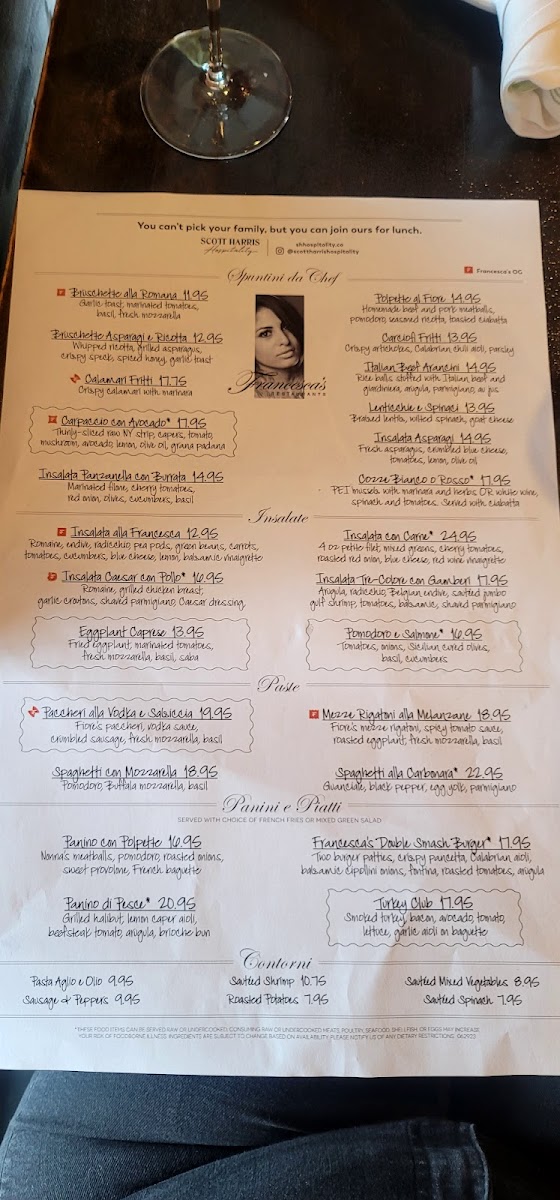 You can't pick your family, but you can join ours for lunch.
SCOTT HARRIS
Hospitality
shhospitality.co
@scottharrishospitality
Spuntini da Chef
Francesca's OG
Bruschette alla Romana 11.95
Garlic toast, marinated tomatoes,
basil, fresh mozzarella
Bruschette Asparagi e Ricotta 12.95
Whipped ricotta, grilled asparagus,
crispy speck, spiced honey, garlic toast
Calamari Fritti 17.75
Crispy calamari with marinara
Carpaccio con Avocado* 17.95
Thinly-sliced raw NY strip, capers, tomato,
mushroom, avocado, lemon, olive oil, grana padana
Insalata Panzanella con Burrata 14.95
Marinated filone, cherry tomatoes,
red onion, olives, cucumbers, basil
Francesca's
RESTAURANTS
Polpette al Fiore 14.95
Homemade beef and pork meatballs,
pomodoro, seasoned ricotta, toasted ciabatta
Carciofi Fritti 13.95
Crispy artichokes, Calabrian chili aioli, parsley
Italian Beef Arancini 14.95
Rice balls stuffed with Italian beef and
giardiniera, arugula, parmigiano, au jus
Lenticchie e Spinaci 13.95
Braised lentils, wilted spinach, goat cheese
Insalata Asparagi 14.95
Fresh asparagus, crumbled blue cheese,
tomatoes, lemon, olive oil
Cozze Bianco o Rosso* 17.95
PEI mussels with marinara and herbs OR white wine,
spinach and tomatoes. Served with ciabatta
Insalate
Insalata alla Francesca 12.95
Romaine, endive, radicchio, pea pods, green beans, carrots,
tomatoes, cucumbers, blue cheese, lemon, balsamic vinaigrette
Insalata Caesar con Pollo* 16.95
Romaine, grilled chicken breast,
garlic croutons, shaved parmigiano, Caesar dressing
Eggplant Caprese 13.95
Fried eggplant, marinated tomatoes,
fresh mozzarella, basil, saba
Insalata con Carne* 24.95
4 oz petite filet, mixed greens, cherry tomatoes,
roasted red onion, blue cheese, red wine vinaigrette
Insalata Tre-Colore con Gamberi 17.95
Arugula, radicchio, Belgian endive, sautéed jumbo
gulf shrimp, tomatoes, balsamic, shaved parmigiano
Pomodoro e Salmone* 16.95
Tomatoes, onions, Sicilian cured olives,
basil, cucumbers
Paste
Paccheri alla Vodka e Salsiccia 19.95
Fiore's paccheri, vodka sauce,
crumbled sausage, fresh mozzarella, basil
Spaghetti con Mozzarella 18.95
Pomodoro, Buffala mozzarella, basil
Mezze Rigatoni alla Melanzane 18.95
Fiore's mezze rigatoni, spicy tomato sauce,
roasted eggplant, fresh mozzarella, basil
Spaghetti alla Carbonara* 22.95
Guanciale, black pepper, egg yolk, parmigiano
Panini e Piatti
SERVED WITH CHOICE OF FRENCH FRIES OR MIXED GREEN SALAD
Panino con Polpette 16.95
Nonna's meatballs, pomodoro, roasted onions,
sweet provolone, French baguette
Panino di Pesce* 20.95
Grilled halibut, lemon caper aioli,
beefsteak tomato, arugula, brioche bun
Francesca's Double Smash Burger* 17.95
Two burger patties, crispy pancetta, Calabrian aioli,
balsamic cipollini onions, fontina, roasted tomatoes, arugula
Turkey Club 17.95
Smoked turkey, bacon, avocado, tomato,
lettuce, garlic aioli on baguette
Contorni
Pasta Aglio e Olio 9.95
Sausage & Peppers 9.95
Sautéed Shrimp 10.75
Roasted Potatoes 7.95
Sautéed Mixed Vegetables 8.95
Sautéed Spinach 7.95
*THESE FOOD ITEMS CAN BE SERVED RAW OR UNDERCOOKED. CONSUMING RAW OR UNDERCOOKED MEATS, POULTRY, SEAFOOD, SHELLFISH, OR EGGS MAY INCREASE
YOUR RISK OF FOODBORNE ILLNESS. INGREDIENTS ARE SUBJECT TO CHANGE BASED ON AVAILABILITY. PLEASE NOTIFY US OF ANY DIETARY RESTRICTIONS. 062923